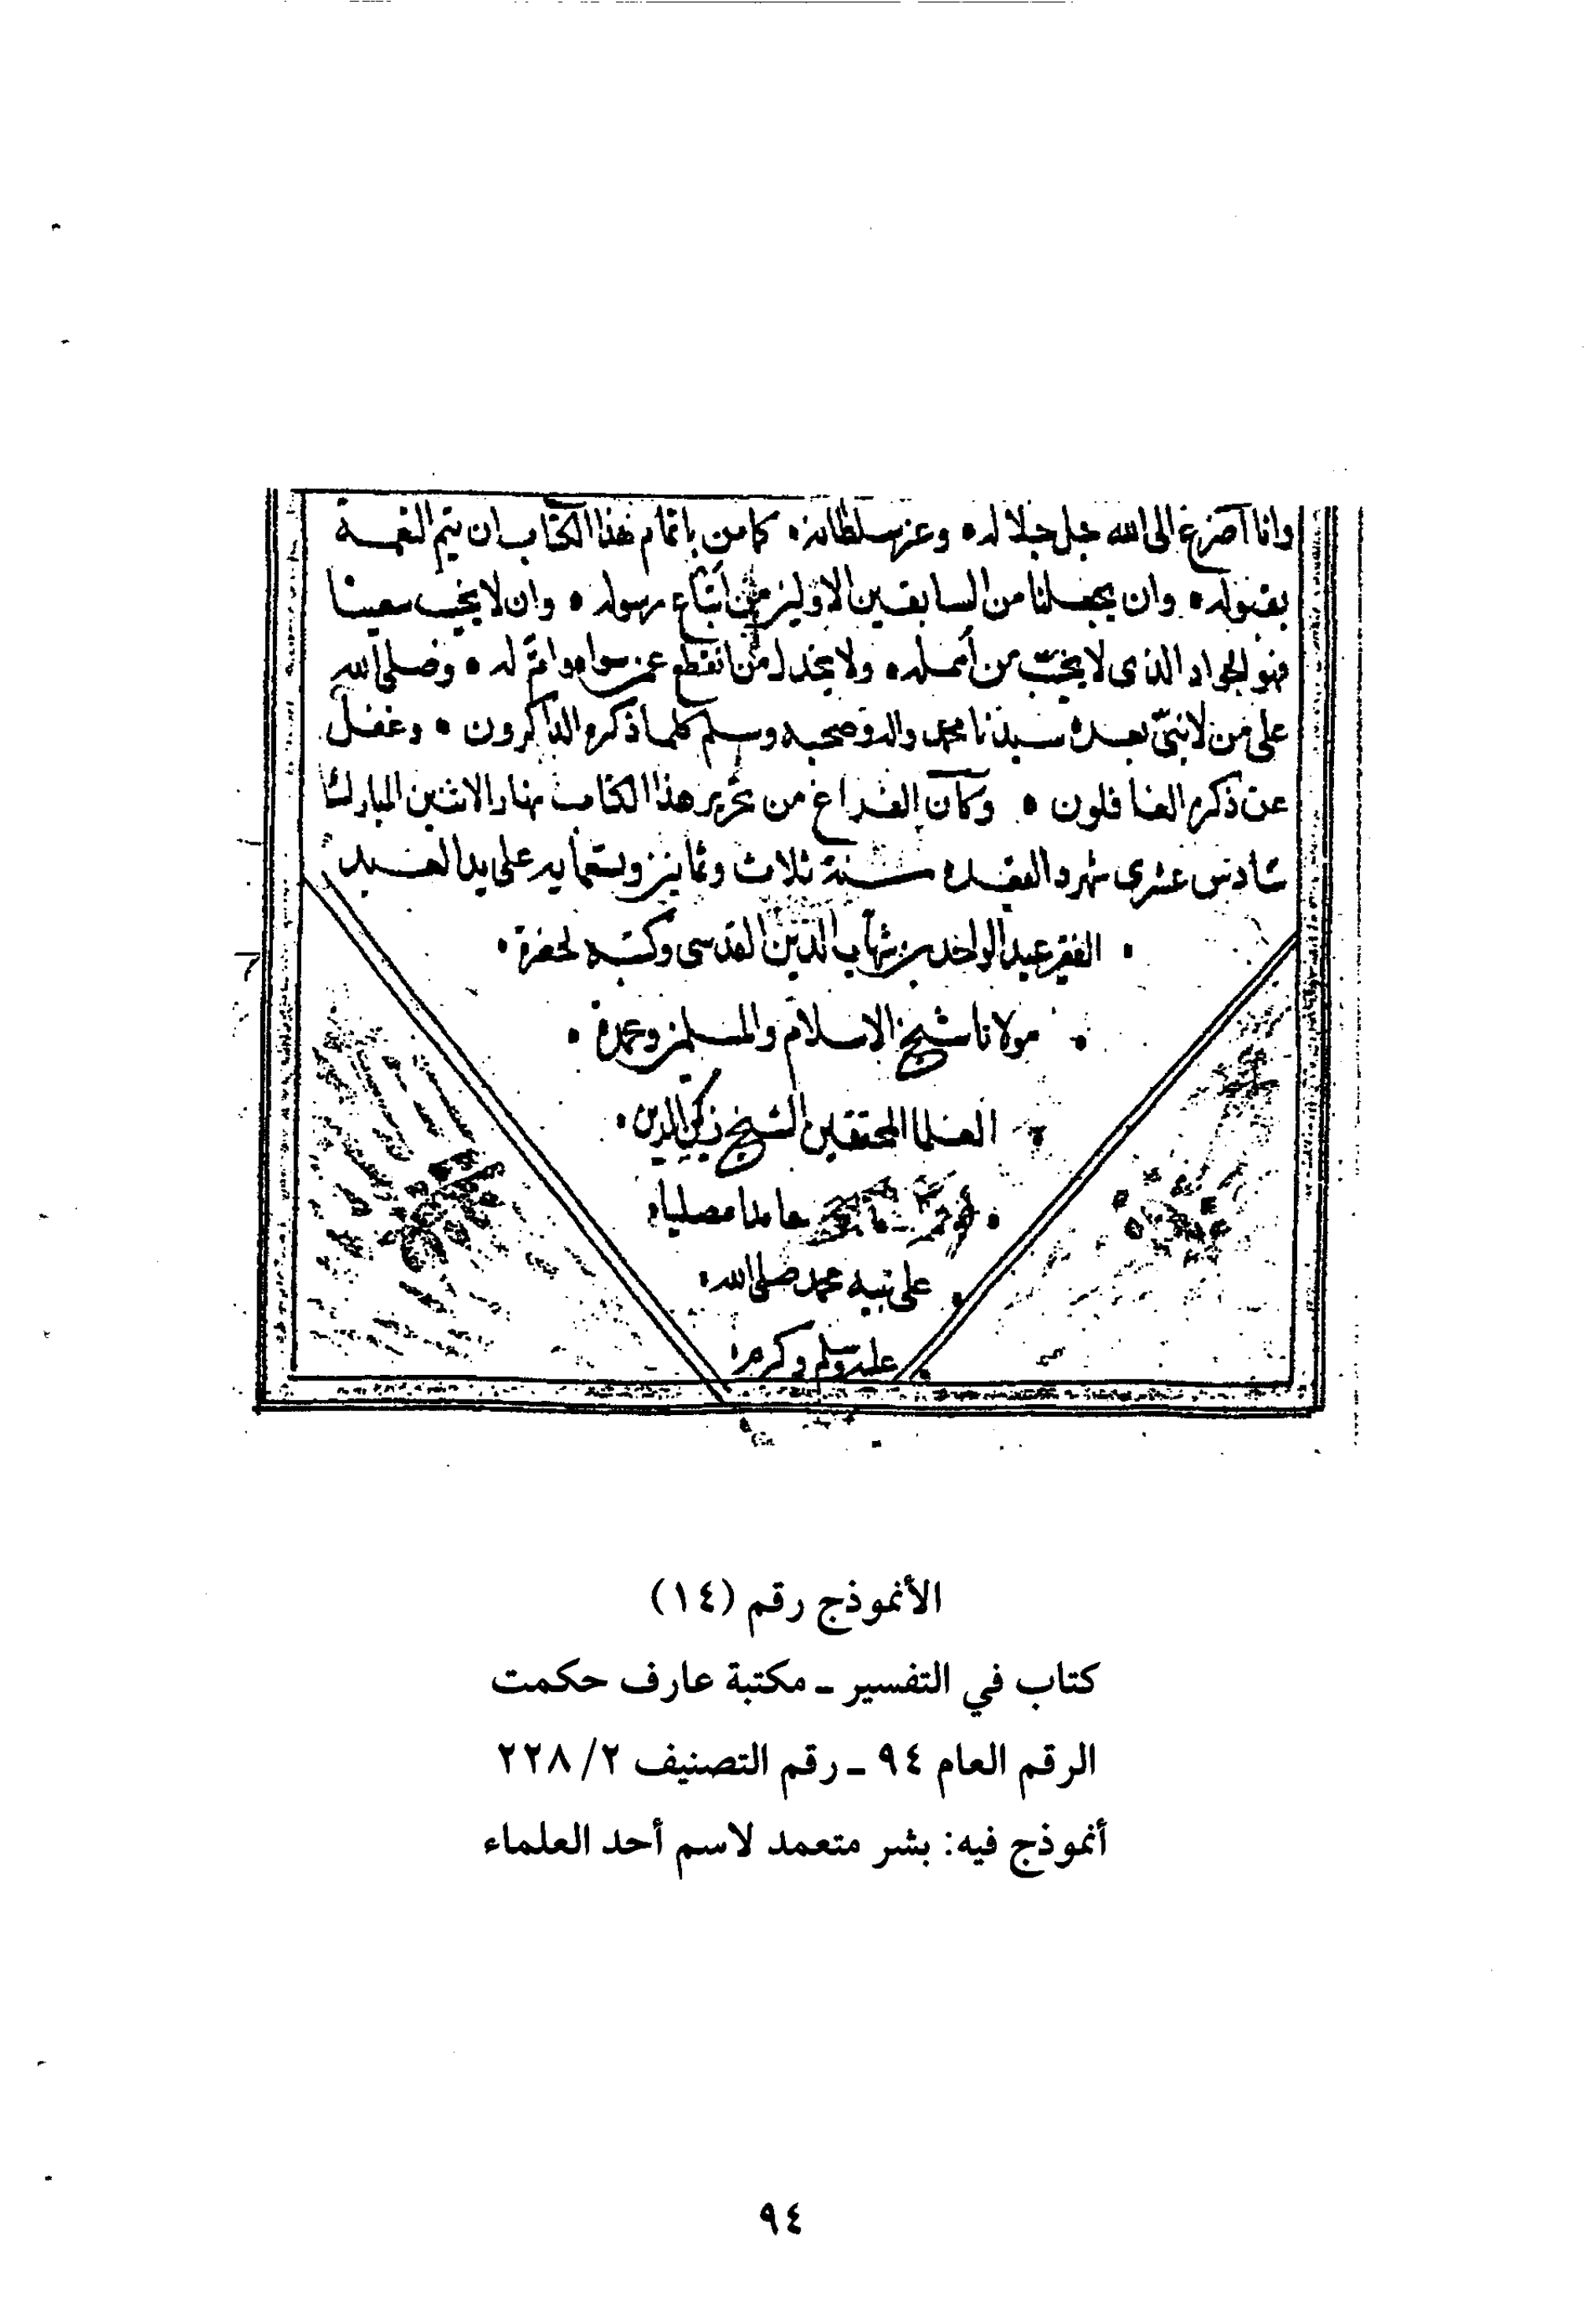 وانا اضرع الى الله جل جلاله وعز سلطانه كما من باتمام هذا الكتاب ان يتم النعمة
بقبوله وان يجعلنا من السابقين الاولين من اتباع رسوله وان لا يخيب سعينا
فهو الجواد الذى لا يخيب من أمله ولا يخذل من انقطع عمن سواه وامّ له وصلى الله
على من لا نبيّ بعده سيدنا محمد واله وصحبه وسلم كلما ذكره الذاكرون وغفل
عن ذكره الغافلون وكان الفراغ من تحرير هذا الكتاب نهار الاثنين المبارك
سادس عشرى شهر ذ القعده سنة ثلاث وثمانين وتسعمايه على يد العبد
الفقير عبد الواحد بن شهاب الدين القدسى وكتبه لحضرة
مولانا شيخ الاسلام والمسلمين وعمدة
العلما المحققين الشيخ زكي الدين
حامدا مصليا
على نبيه محمد صلى الله
عليه وسلم وكرم
الأنموذج رقم (١٤)
كتاب في التفسير ـ مكتبة عارف حكمت
الرقم العام ٩٤ ـ رقم التصنيف ٢/ ٢٢٨
أنموذج فيه: بشر متعمد لاسم أحد العلماء
٩٤